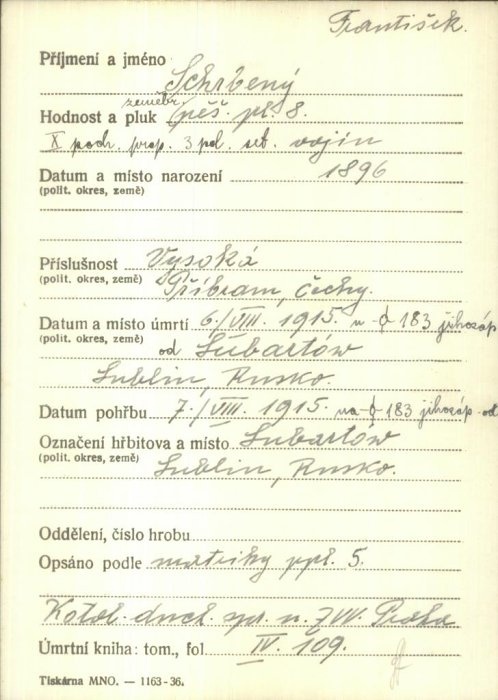 František.
Příjmení a jméno Schrbený
zeměbr.
Hodnost a pluk pěš. pl. 8.
X poch. prap. 3 pol. set. vojín
Datum a místo narození 1896
(polit. okres, země)
Příslušnost Vysoká
(polit. okres, země) Příbram, Čechy.
Datum a místo úmrtí 6./VIII. 1915. u 183 jihozáp
(polit. okres, země) od Lubartów
Lublin, Rusko.
Datum pohřbu 7./VIII. 1915. na 183 jihozáp. od
Označení hřbitova a místo Lubartów
(polit. okres, země) Lublin, Rusko.
Oddělení, číslo hrobu
Opsáno podle matriky ppl. 5.
Katol. duch. spr. u ZVV. Praha
Úmrtní kniha: tom., fol IV. 109.
Tiskárna MNO. — 1163-36.